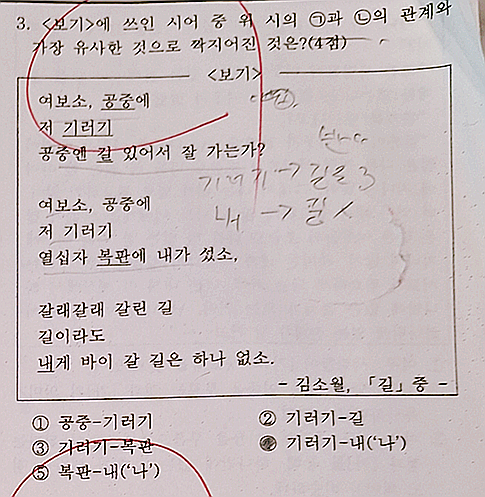 3. <보기>에 쓰인 시어 중 위 시의 ㉠과 ㉡의 관계와
가장 유사한 것으로 짝지어진 것은?(4점)
<보기>
여보소, 공중에
저 기러기
공중엔 길 있어서 잘 가는가?
기러기 → 길 O
내 → 길 X
여보소, 공중에
저 기러기
열십자 복판에 내가 섰소,
갈래갈래 갈린 길
길이라도
내게 바이 갈 길은 하나 없소.
- 김소월, 「길」 중 -
① 공중-기러기
② 기러기-길
③ 기러기-복판
기러기-내('나')
⑤ 복판-내('나')